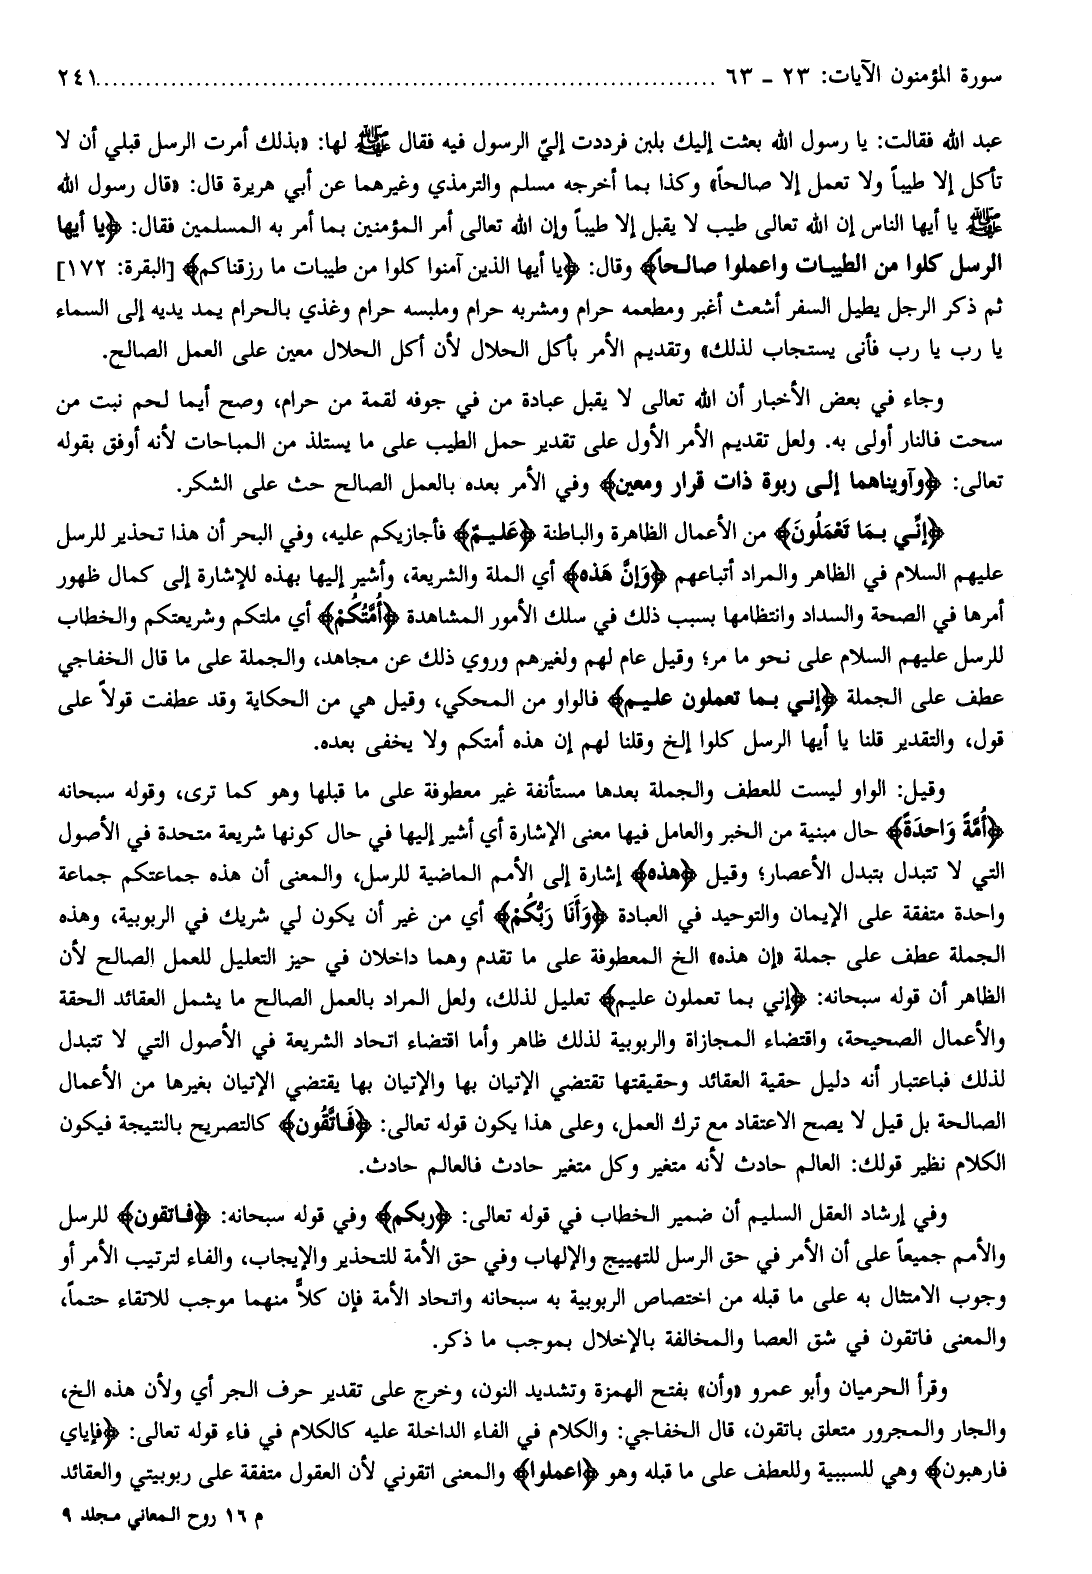 سورة المؤمنون الآيات: ٢٣ ـ ٦٣ ........................................................ ٢٤١
عبد الله فقالت: يا رسول الله بعثت إليك بلبن فرددت إليّ الرسول فيه فقال ﷺ لها: «بذلك أمرت الرسل قبلي أن لا
تأكل إلا طيباً ولا تعمل إلا صالحاً» وكذا بما أخرجه مسلم والترمذي وغيرهما عن أبي هريرة قال: «قال رسول الله
ﷺ يا أيها الناس إن الله تعالى طيب لا يقبل إلا طيباً وإن الله تعالى أمر المؤمنين بما أمر به المسلمين فقال: ﴿يا أيها
الرسل كلوا من الطيبات واعملوا صالحاً﴾ وقال: ﴿يا أيها الذين آمنوا كلوا من طيبات ما رزقناكم﴾ [البقرة: ١٧٢]
ثم ذكر الرجل يطيل السفر أشعث أغبر ومطعمه حرام ومشربه حرام وملبسه حرام وغذي بالحرام يمد يديه إلى السماء
يا رب يا رب فأنى يستجاب لذلك» وتقديم الأمر بأكل الحلال لأن أكل الحلال معين على العمل الصالح.
وجاء في بعض الأخبار أن الله تعالى لا يقبل عبادة من في جوفه لقمة من حرام، وصح أيما لحم نبت من
سحت فالنار أولى به. ولعل تقديم الأمر الأول على تقدير حمل الطيب على ما يستلذ من المباحات لأنه أوفق بقوله
تعالى: ﴿وآويناهما إلى ربوة ذات قرار ومعين﴾ وفي الأمر بعده بالعمل الصالح حث على الشكر.
﴿إنِّي بمَا تَعْمَلُونَ﴾ من الأعمال الظاهرة والباطنة ﴿عَليمٌ﴾ فأجازيكم عليه، وفي البحر أن هذا تحذير للرسل
عليهم السلام في الظاهر والمراد أتباعهم ﴿وَإنَّ هَذه﴾ أي الملة والشريعة، وأشير إليها بهذه للإشارة إلى كمال ظهور
أمرها في الصحة والسداد وانتظامها بسبب ذلك في سلك الأمور المشاهدة ﴿أُمَّتُكُمْ﴾ أي ملتكم وشريعتكم والخطاب
للرسل عليهم السلام على نحو ما مر؛ وقيل عام لهم ولغيرهم وروي ذلك عن مجاهد، والجملة على ما قال الخفاجي
عطف على الجملة ﴿إني بما تعملون عليم﴾ فالواو من المحكي، وقيل هي من الحكاية وقد عطفت قولاً على
قول، والتقدير قلنا يا أيها الرسل كلوا إلخ وقلنا لهم إن هذه أمتكم ولا يخفى بعده.
وقيل: الواو ليست للعطف والجملة بعدها مستأنفة غير معطوفة على ما قبلها وهو كما ترى، وقوله سبحانه
﴿أُمَّةً وَاحدَةً﴾ حال مبنية من الخبر والعامل فيها معنى الإشارة أي أشير إليها في حال كونها شريعة متحدة في الأصول
التي لا تتبدل بتبدل الأعصار؛ وقيل ﴿هذه﴾ إشارة إلى الأمم الماضية للرسل، والمعنى أن هذه جماعتكم جماعة
واحدة متفقة على الإيمان والتوحيد في العبادة ﴿وَأَنَا رَبُّكُمْ﴾ أي من غير أن يكون لي شريك في الربوبية، وهذه
الجملة عطف على جملة «إن هذه» الخ المعطوفة على ما تقدم وهما داخلان في حيز التعليل للعمل الصالح لأن
الظاهر أن قوله سبحانه: ﴿إني بما تعملون عليم﴾ تعليل لذلك، ولعل المراد بالعمل الصالح ما يشمل العقائد الحقة
والأعمال الصحيحة، واقتضاء المجازاة والربوبية لذلك ظاهر وأما اقتضاء اتحاد الشريعة في الأصول التي لا تتبدل
لذلك فباعتبار أنه دليل حقية العقائد وحقيقتها تقتضي الإتيان بها والإتيان بها يقتضي الإتيان بغيرها من الأعمال
الصالحة بل قيل لا يصح الاعتقاد مع ترك العمل، وعلى هذا يكون قوله تعالى: ﴿فَاتَّقُون﴾ كالتصريح بالنتيجة فيكون
الكلام نظير قولك: العالم حادث لأنه متغير وكل متغير حادث فالعالم حادث.
وفي إرشاد العقل السليم أن ضمير الخطاب في قوله تعالى: ﴿ربكم﴾ وفي قوله سبحانه: ﴿فاتقون﴾ للرسل
والأمم جميعاً على أن الأمر في حق الرسل للتهييج والإلهاب وفي حق الأمة للتحذير والإيجاب، والفاء لترتيب الأمر أو
وجوب الامتثال به على ما قبله من اختصاص الربوبية به سبحانه واتحاد الأمة فإن كلاًّ منهما موجب للاتقاء حتماً،
والمعنى فاتقون في شق العصا والمخالفة بالإخلال بموجب ما ذكر.
وقرأ الحرميان وأبو عمرو «وأن» بفتح الهمزة وتشديد النون، وخرج على تقدير حرف الجر أي ولأن هذه الخ،
والجار والمجرور متعلق باتقون، قال الخفاجي: والكلام في الفاء الداخلة عليه كالكلام في فاء قوله تعالى: ﴿فإياي
فارهبون﴾ وهي للسببية وللعطف على ما قبله وهو ﴿اعملوا﴾ والمعنى اتقوني لأن العقول متفقة على ربوبيتي والعقائد
م ١٦ روح المعاني مجلد ٩